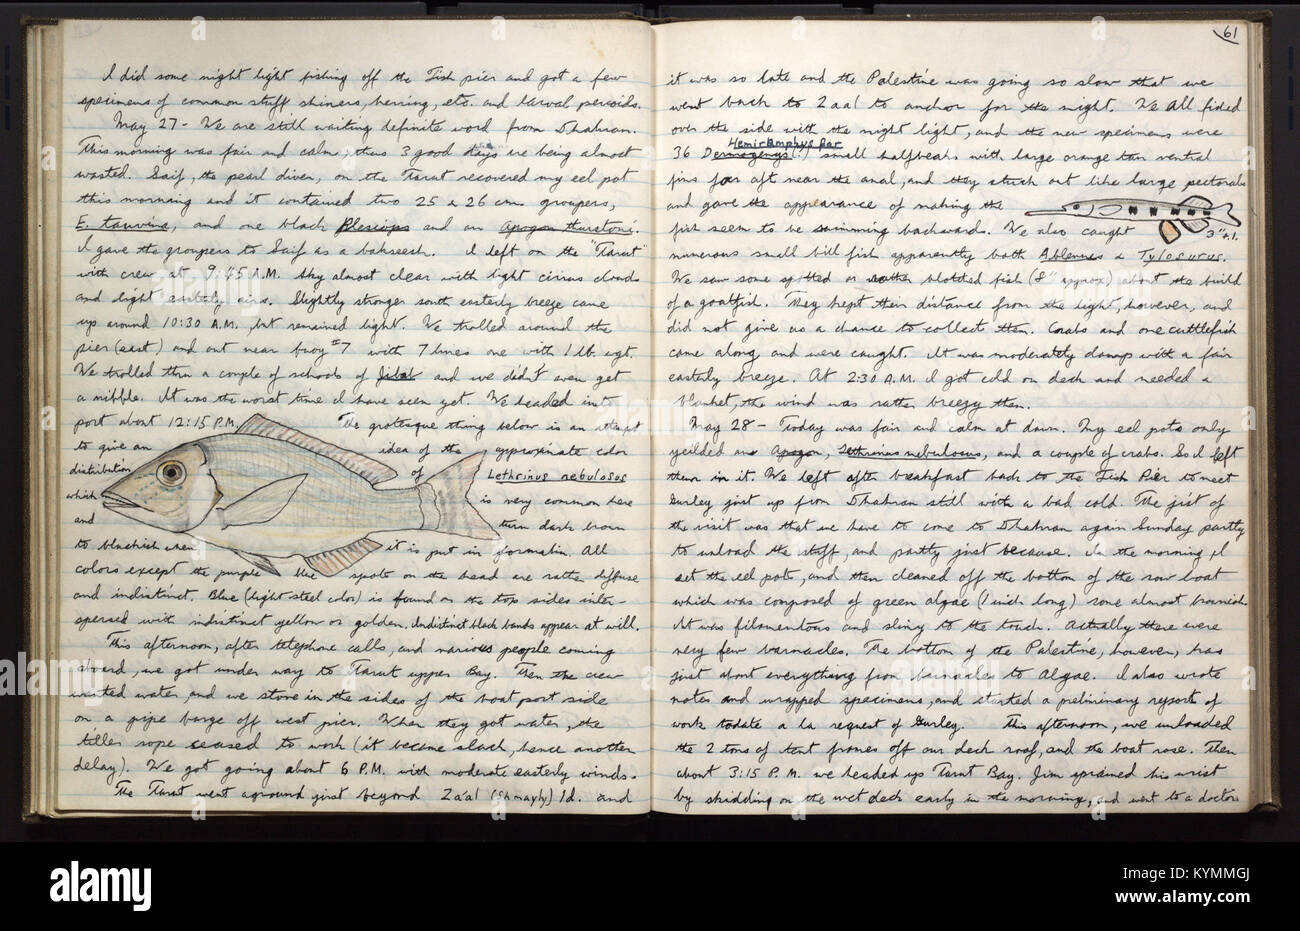 I did some night light fishing off the Fish pier and got a few
specimens of common stuff shiners, herring, etc. and larval percoids.
May 27 - We are still waiting definite word from Dhahran.
This morning was fair and calm, thus 3 good days are being almost
wasted. Saif, the pearl diver, on the Tarut recovered my eel pot
this morning and it contained two 25 & 26 cm groupers,
E. tauvina, and one black Plesiops and an Apogon thurstoni.
I gave the groupers to Saif as a baksheesh. I left on the "Tarut"
with crew at 9:45 A.M. Sky almost clear with light cirrus clouds
and light easterly airs. Slightly stronger south easterly breeze came
up around 10:30 A.M., but remained light. We trolled around the
pier (east) and out near buoy #7 with 7 lines one with 1 lb. wgt.
We trolled thru a couple of schools of and we didn't even get
a nibble. It was the worst time I have seen yet. We headed into
port about 12:15 P.M. The grotesque thing below is an attempt
to give an idea of the approximate color
distribution of Lethrinus nebulosus
which is very common here
and turn dark brown
to blackish when it is put in formalin. All
colors except the purple blue spots on the head are rather diffuse
and indistinct. Blue (light steel color) is found on the top sides inter-
spersed with indistinct yellow or golden. Indistinct black bands appear at will.
This afternoon, after telephone calls, and various people coming
aboard, we got under way to Tarut upper Bay. Then the crew
wanted water, and we store in the sides of the boat port side
on a pipe barge off west pier. When they got water, the
tiller rope ceased to work (it became slack, hence another
delay). We got going about 6 P.M. with moderate easterly winds.
The Tarut went aground just beyond Zaal (Shmayly) Id. and
61
it was so late and the Palestine was going so slow that we
went back to Zaal to anchor for the night. We all fished
over the side with the night light, and the new specimens were
Hemiramphus far
36 Dermogenys (?) small halfbeaks with large orange tan ventral
fins far aft near the anal, and they stuck out like large pectorals
and gave the appearance of making the
fish seem to be swimming backwards. We also caught
3"±.
numerous small bill fish apparently both Ablennes & Tylosurus.
We saw some spotted or rather blotched fish (8" approx) about the build
of a goatfish. They kept their distance from the light, however, and
did not give us a chance to collect them. Crabs and one cuttlefish
came along and were caught. It was moderately damp with a fair
easterly breeze. At 2:30 A.M. I got cold on deck and needed a
blanket, the wind was rather breezy then.
May 28 - Today was fair and calm at dawn. My eel pots only
yeilded an Apogon, Lethrinus nebulosus, and a couple of crabs. So I left
them in it. We left after breakfast back to the Fish Pier to meet
Gurley just up from Dhahran still with a bad cold. The jist of
the visit was that we have to come to Dhahran again Sunday partly
to unload the stuff, and partly just because. In the morning, I
set the eel pots, and then cleaned off the bottom of the row boat
which was composed of green algae (1 inch long) some almost brownish.
It was filamentous and slimy to the touch. Actually there were
very few barnacles. The bottom of the Palestine, however, has
just about everything from barnacles to Algae. I also wrote
notes and wrapped specimens, and started a preliminary report of
work todate a la request of Gurley. This afternoon, we unloaded
the 2 tons of tent frames off our deck roof, and the boat rose. Then
about 3:15 P.M. we headed up Tarut Bay. Jim sprained his wrist
by skidding on the wet deck early in the morning, and went to a doctor
alamy
Image ID: KYMMGJ
www.alamy.com